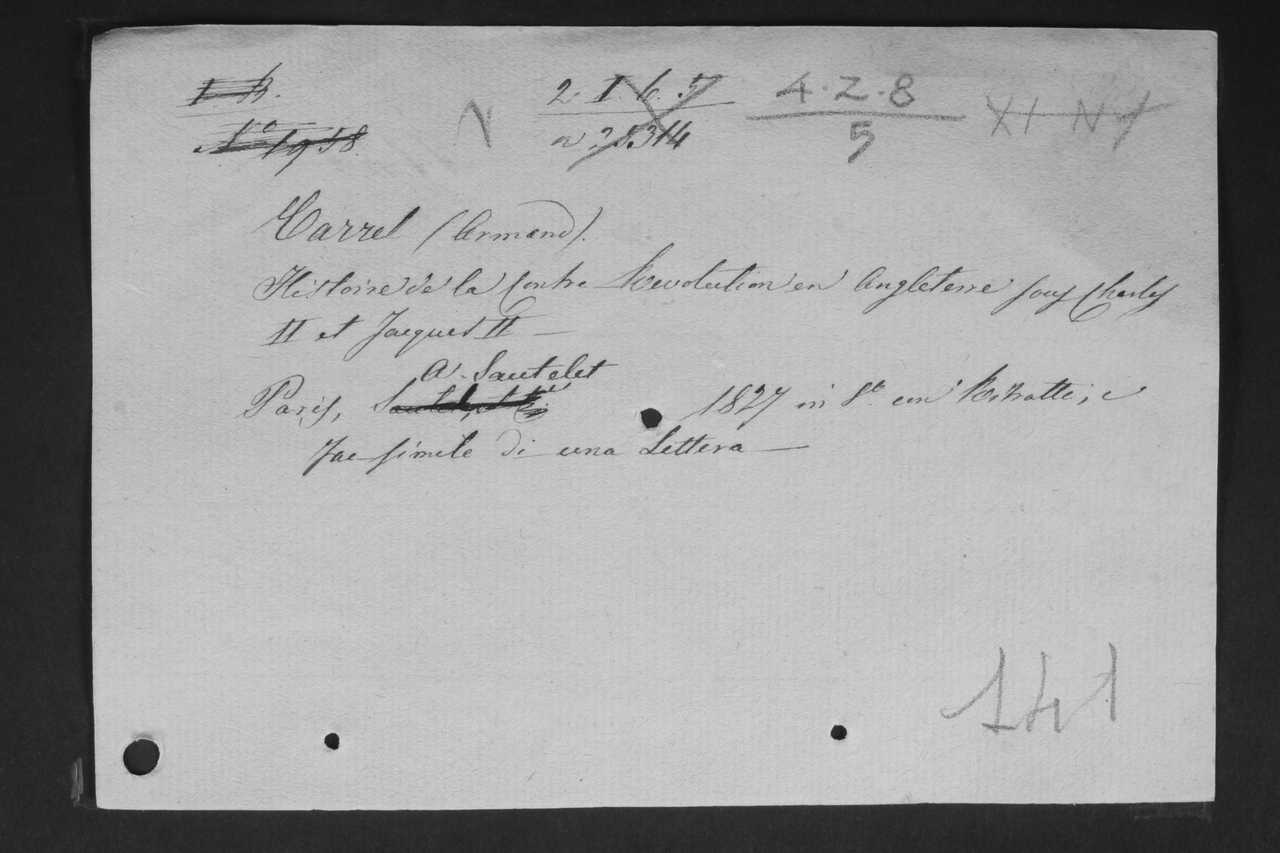 I B.
N.º 1958
N
2. I. 6. 5
4.2.8
5
XI N
Carrel (Armand).
Histoire de la Contre Revolution en Angleterre sous Charles
II et Jacques II —
A. Sautelet
Paris, 1827 in 8.º con Ritratto, e
fac simile di una Lettera —
141